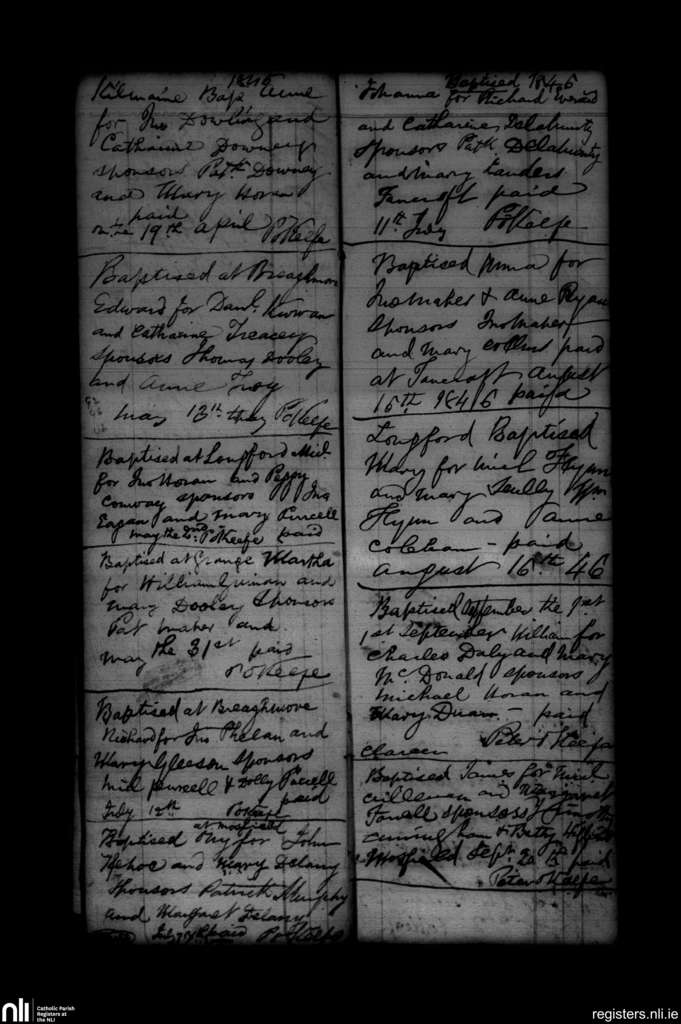 1846
Kilmaine Bap. Anne
for Jno Dowling and
Catharine Downey
sponsors Patk Downey
and Mary Horan
paid
on the 19th April POKeefe
Baptised at Breaghmore
Edward for Danl. Kirwan
and Catharine Treacey
sponsors Thomas Dooley
and Anne Troy
May 13th they POKeefe
Baptised at Longford Mich.
for Jno Horan and Peggy
Conway sponsors Jno
Eagan and Mary Purcell
May the 2nd POKeefe paid
Baptised at Grange Martha
for William Guinan and
Mary Dooley Sponsors
Pat Maher and
May the 31st paid
POKeefe
Baptised at Breaghmore
Richard for Jno Phelan and
Mary Gleeson Sponsors
Mich Purcell & Dolly Purcell
paid
July 12th POKeefe
at Mosfield
Baptised for John
Kehoe and Mary Delany
Sponsors Patrick Murphy
and Margaret Delany
July paid POKeefe
Baptised 1846
Johanna for Richard
and Catharine Delahunty
Sponsors Patk Delahunty
and Mary Landers
Fancroft paid
11th July POKeefe
Baptised Anna for
Jno Maher & Anne Ryan
Sponsors Jno Maher
and Mary Collins paid
at Fancroft August
15th 1846 paid
Longford Baptised
Mary for Mich Flynn
and Mary Scully
Flynn and Anne
Coleham - paid
August 16th 46
Baptised September the 1st
1st September William for
Charles Daly and Mary
McDonald sponsors
Michael Horan and
Mary Duan - paid
Clareen Peter OKeefe
Baptised James for Mich
Cullenan and Margaret
Powell sponsors Timothy
Cuningham & Betty
Mosfield Sept. 20th paid
Peter OKeefe
nli
Catholic Parish
Registers at
the NLI
registers.nli.ie